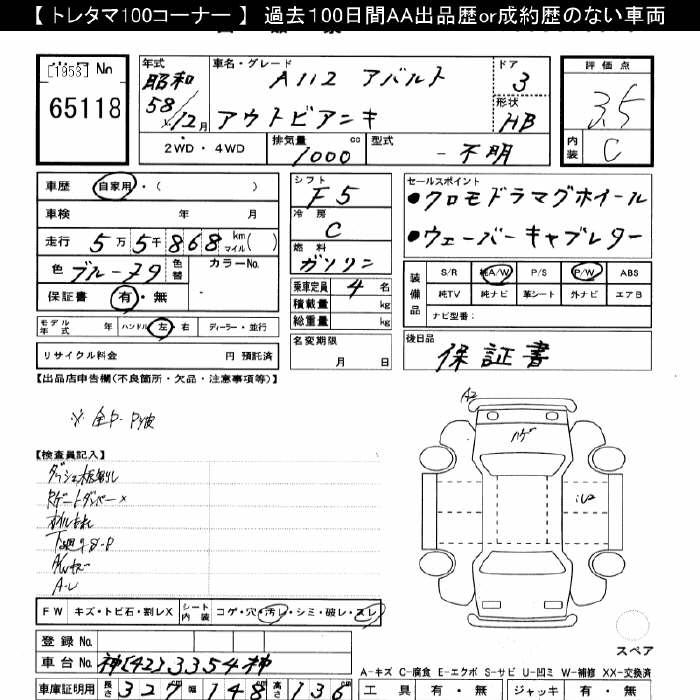 【 トレタマ100コーナー 】 過去100日間AA出品歴or成約歴のない車両
【1953】 No
65118
年式 昭和 58/12月
車名・グレード A112 アバルト アウトビアンキ
ドア 3
形状 HB
2WD・4WD
排気量 1000 cc
型式 - 不明
評価点 3.5
内装 C
車歴 自家用・( )
車検 年 月
走行 5万5千868 km マイル( )
色 ブルー79 色替 カラーNo.
保証書 有・無
モデル年式 年 ハンドル 左・右 ディーラー・並行
リサイクル料金 円 預託済
シフト F5
冷房 C
燃料 ガソリン
乗車定員 4 名
積載量 kg
総重量 kg
名変期限 月 日
セールスポイント
●クロモドラマグホイール
●ウェーバーキャブレター
装備品
S/R 純A/W P/S P/W ABS
純TV 純ナビ 革シート 外ナビ エアB
ナビ型番:
後日品 保証書
【出品店申告欄(不良箇所・欠品・注意事項等)】
【検査員記入】
A2
ハゲ
FW キズ・トビ石・割レX シート内装 コゲ・穴・汚レ・シミ・破レ・スレ
登録 No.
車台 No. 神[42]3354神
車庫証明用 長さ 327 幅 148 高さ 136
スペア
A-キズ C-腐食 E-エクボ S-サビ U-凹ミ W-補修 XX-交換済
工具 有・無 ジャッキ 有・無